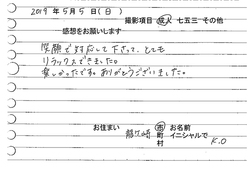 2019年5月5日(日)
撮影項目 成人 七五三・その他
感想をお願いします
笑顔で対応して下さって、とても
リラックスできました。
楽しかったです。ありがとうございました。
お住まい 市 町 村 お名前 イニシャルで K.O